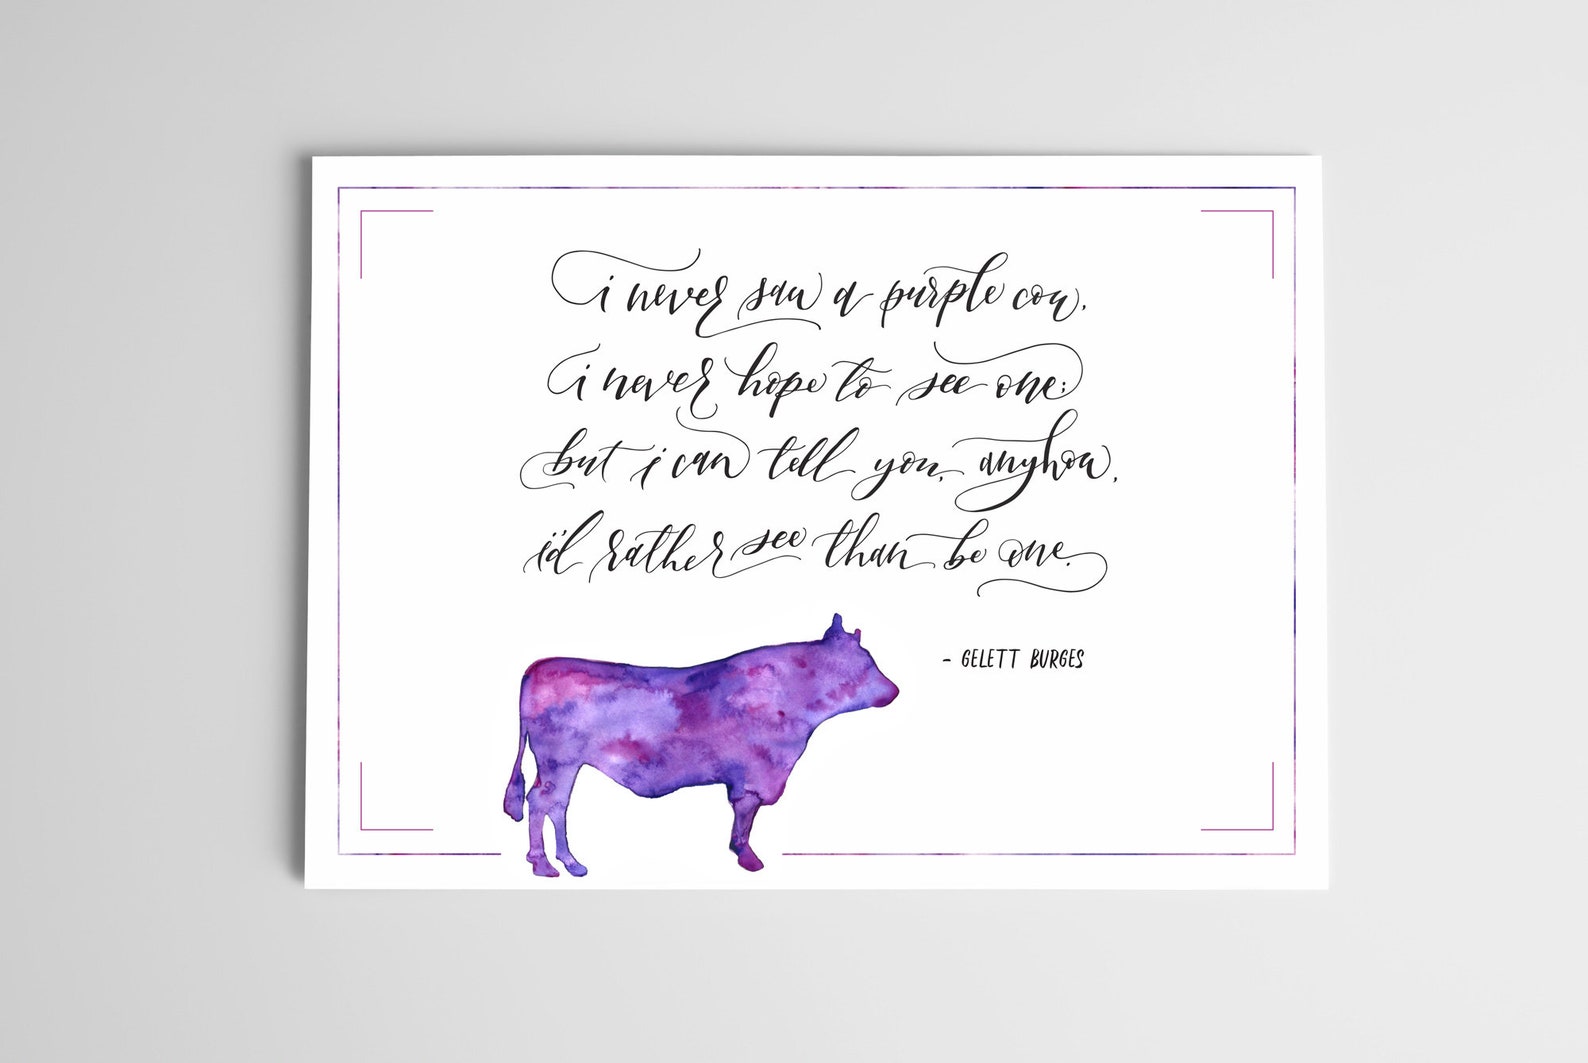 i never saw a purple cow.
i never hope to see one;
but i can tell you, anyhow,
i'd rather see than be one.
- GELETT BURGES